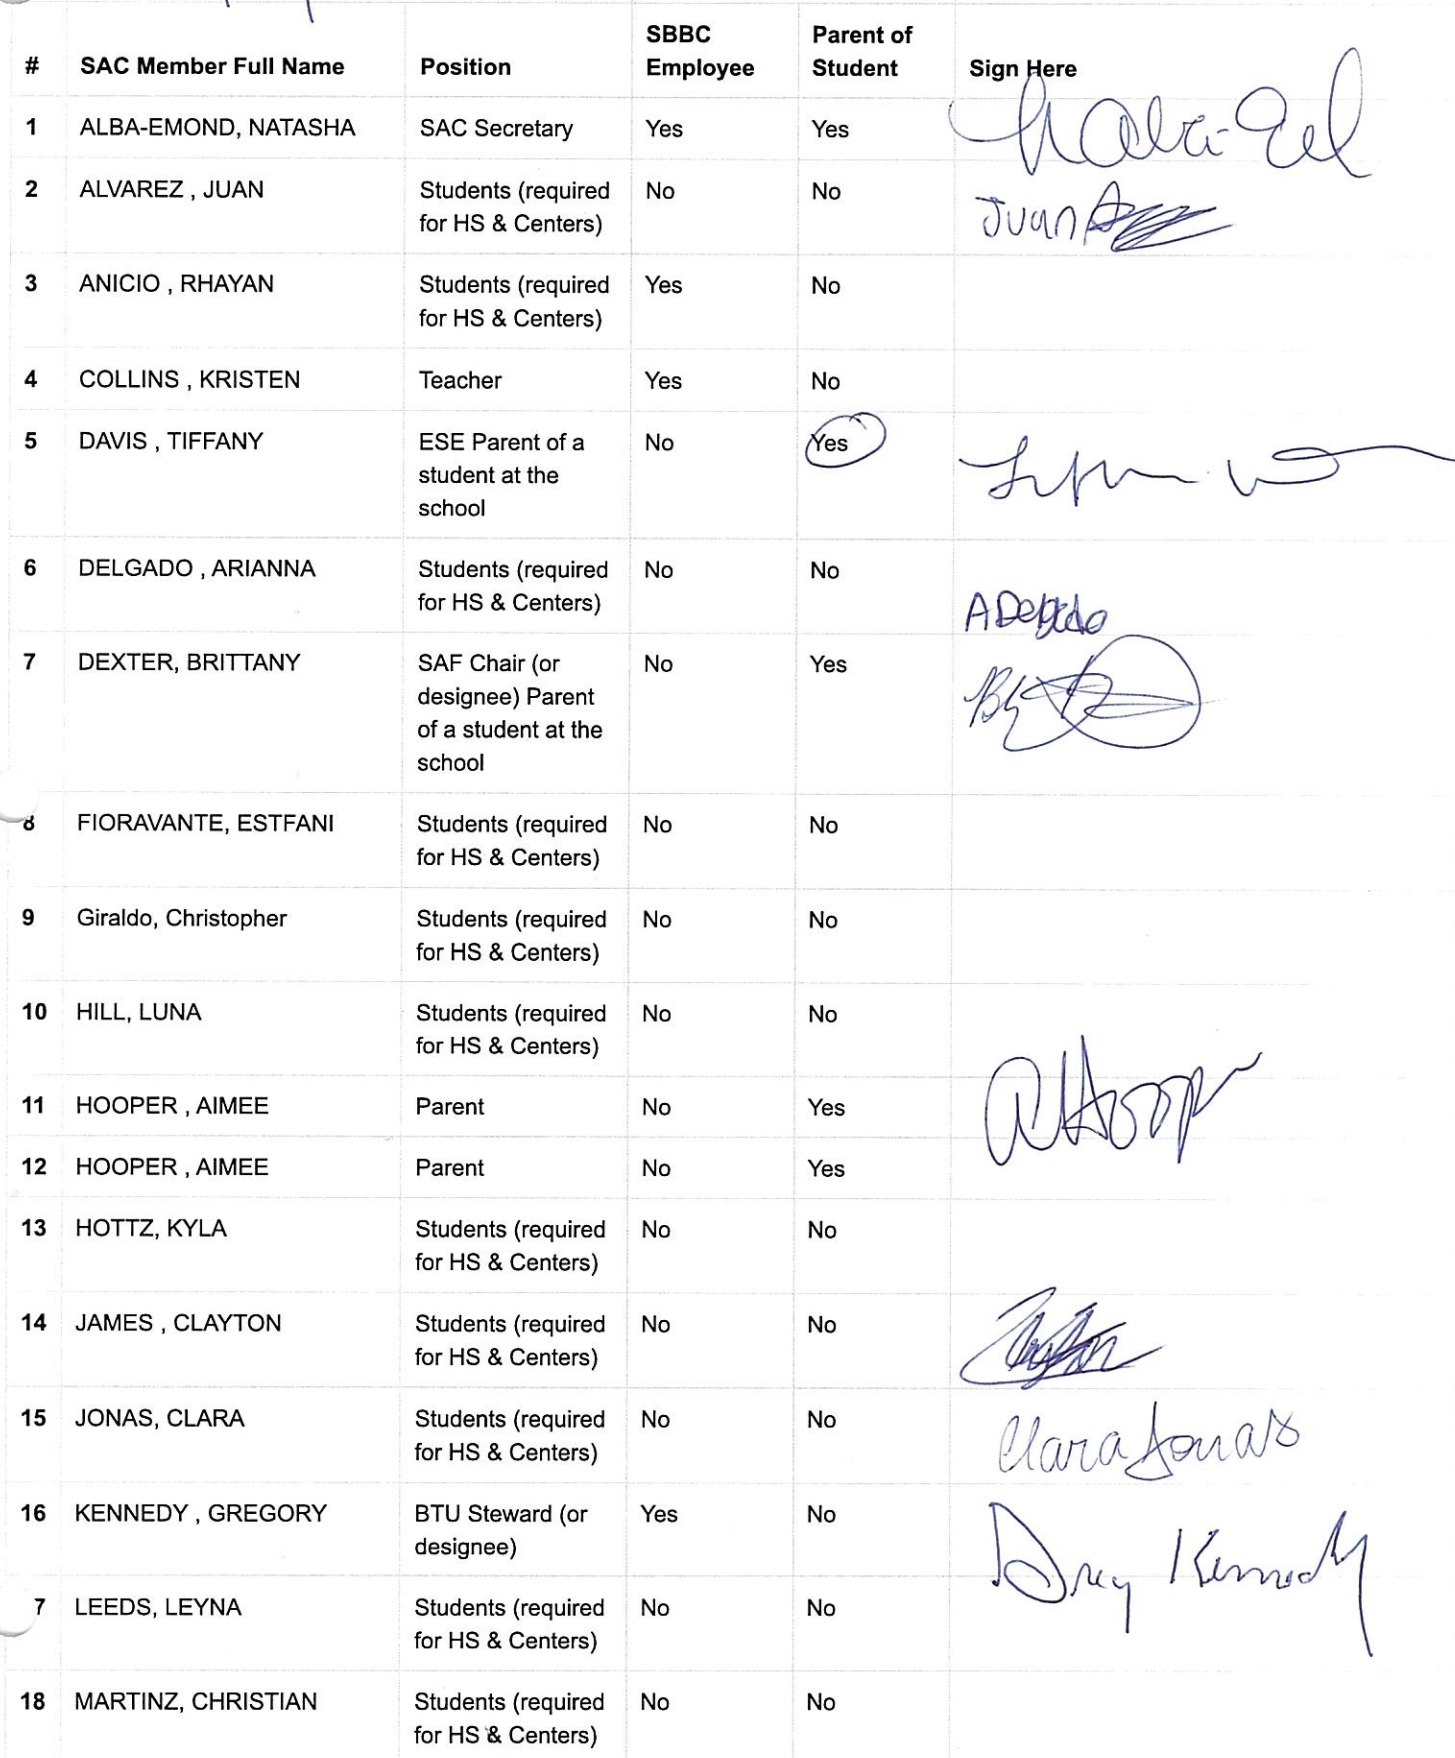 SBBC Parent of
# SAC Member Full Name Position Employee Student Sign Here
1 ALBA-EMOND, NATASHA SAC Secretary Yes Yes
2 ALVAREZ , JUAN Students (required No No Juan
for HS & Centers)
3 ANICIO , RHAYAN Students (required Yes No
for HS & Centers)
4 COLLINS , KRISTEN Teacher Yes No
5 DAVIS , TIFFANY ESE Parent of a No Yes
student at the
school
6 DELGADO , ARIANNA Students (required No No
for HS & Centers) A Delgado
7 DEXTER, BRITTANY SAF Chair (or No Yes
designee) Parent
of a student at the
school
8 FIORAVANTE, ESTFANI Students (required No No
for HS & Centers)
9 Giraldo, Christopher Students (required No No
for HS & Centers)
10 HILL, LUNA Students (required No No
for HS & Centers)
11 HOOPER , AIMEE Parent No Yes A Hooper
12 HOOPER , AIMEE Parent No Yes
13 HOTTZ, KYLA Students (required No No
for HS & Centers)
14 JAMES , CLAYTON Students (required No No
for HS & Centers)
15 JONAS, CLARA Students (required No No Clara Jonas
for HS & Centers)
16 KENNEDY , GREGORY BTU Steward (or Yes No Greg Kennedy
designee)
7 LEEDS, LEYNA Students (required No No
for HS & Centers)
18 MARTINZ, CHRISTIAN Students (required No No
for HS & Centers)